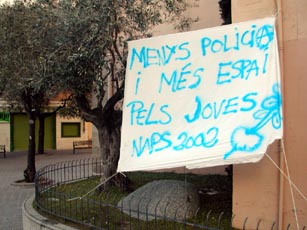 MENYS POLICIA
I MÉS ESPAI
PELS JOVES
NAPS 2002